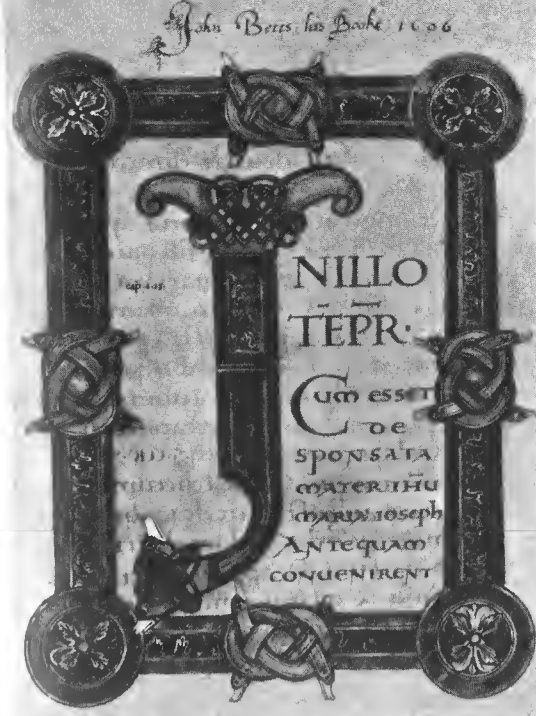 John Betts his Booke 1606
cap. 
I
NILLO
TEPR·
Cum esset
de
sponsata
mater ihu
maria ioseph
Antequam
convenirent